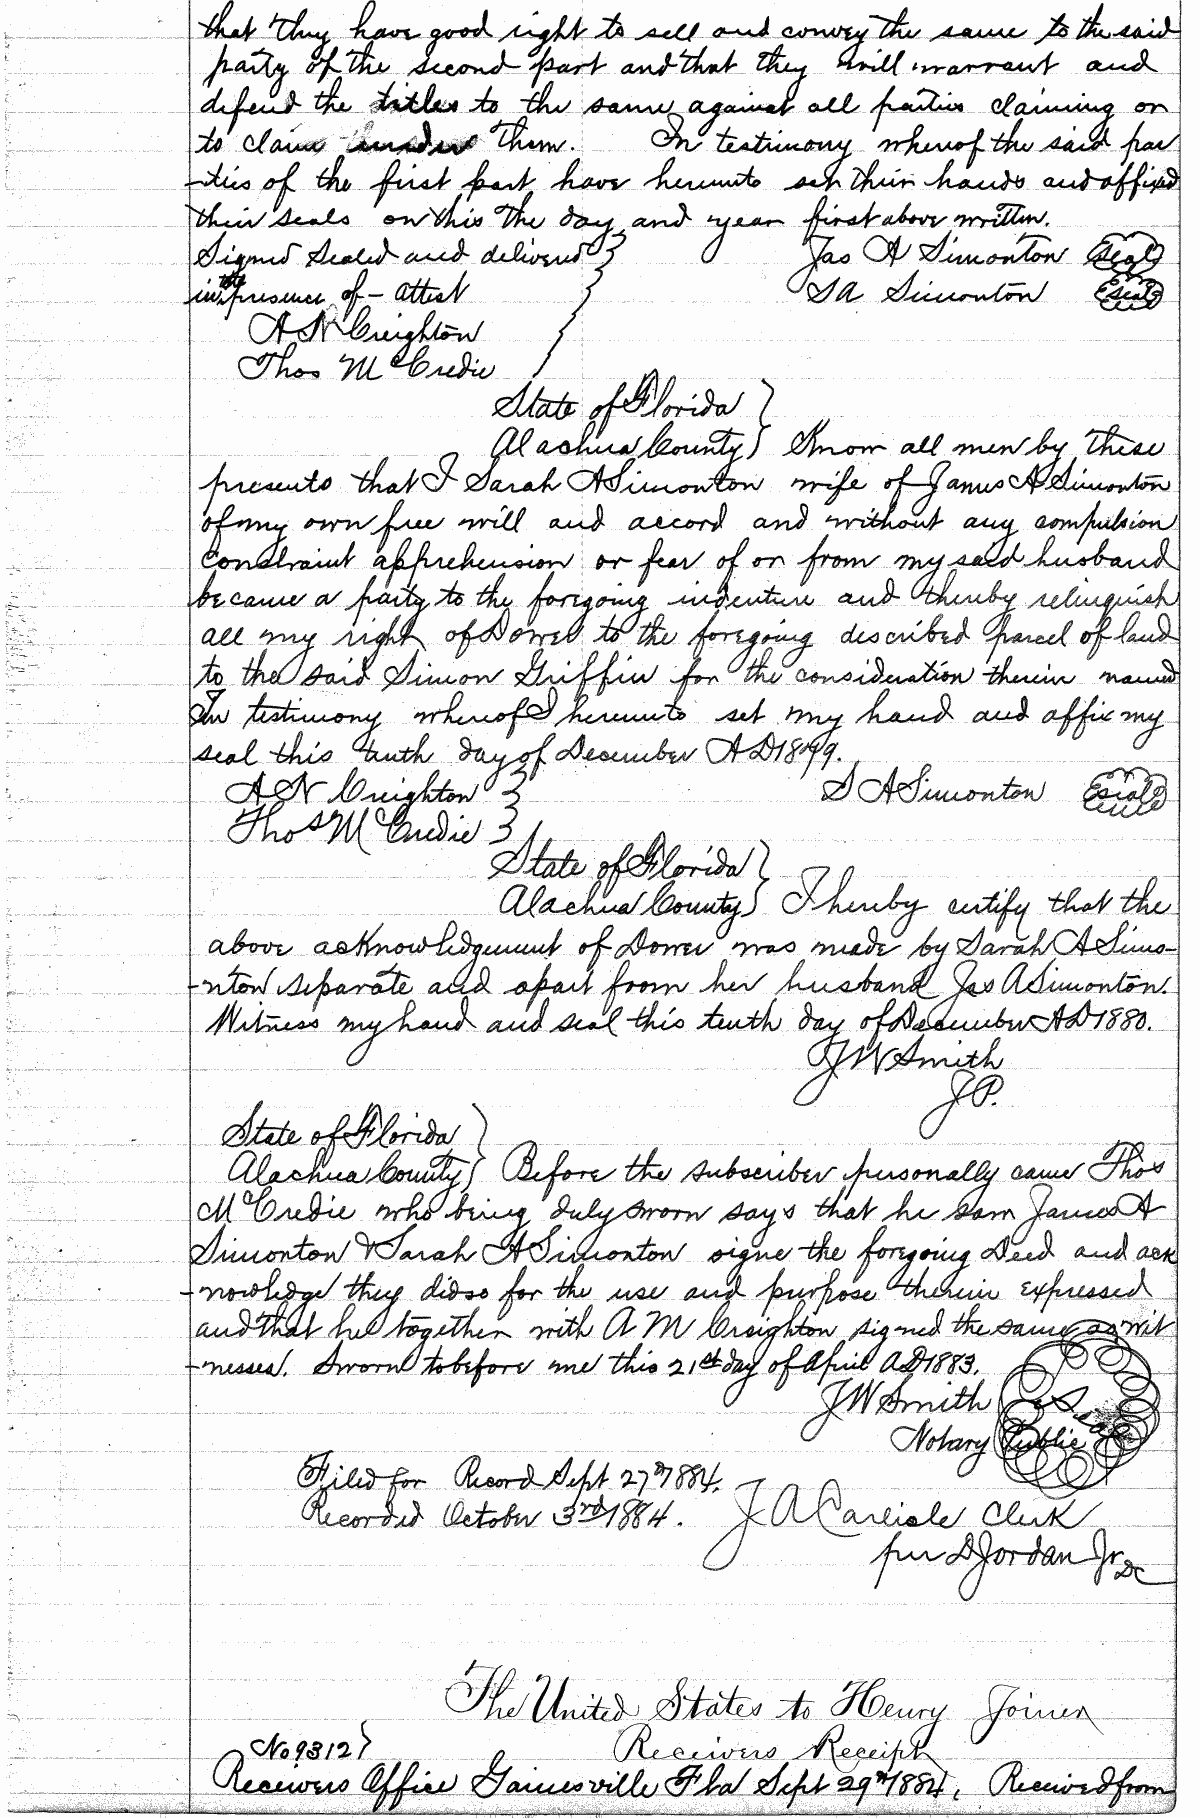 that they have good right to sell and convey the same to the said
party of the second part and that they will warrant and
defend the titles to the same against all parties claiming or
to claim under them. In testimony whereof the said par
-ties of the first part have hereunto set their hands and affixed
their seals on this the day and year first above written.
Signed Sealed and delivered } Jas A Simonton Seal
in the presence of - attest S A Simonton Seal
A N Creighton
Thos McCredie
State of Florida }
Alachua County } Know all men by these
presents that I Sarah A Simonton wife of James A Simonton
of my own free will and accord and without any compulsion
constraint apprehension or fear of or from my said husband
became a party to the foregoing indenture and thereby relinquish
all my right of Dower to the foregoing described parcel of land
to the said Simon Griffin for the consideration therein named
In testimony whereof I hereunto set my hand and affix my
seal this tenth day of December A D
A N Creighton } S A Simonton Seal
Thos McCredie }
State of Florida }
Alachua County } I hereby certify that the
above acknowledgement of Dower was made by Sarah A Simo-
-nton separate and apart from her husband Jas A Simonton.
Witness my hand and seal this tenth day of December AD 1880.
J W Smith
J P.
State of Florida }
Alachua County } Before the subscriber personally came Thos
McCredie who being duly sworn says that he saw James A
Simonton & Sarah A Simonton signe the foregoing Deed and ack
-nowledge they did so for the use and purpose therein expressed
and that he together with A M Creighton signed the same as wit
-nesses. Sworn to before me this 21st day of April AD 1883.
J W Smith Seal
Notary Public
Filed for Record Sept 27th 1884.
Recorded October 3rd 1884. J A Carlisle Clerk
per D Jordan Jr DC
The United States to Henry Joiner
No 9312 } Receivers Receipt
Receivers Office Gainesville Fla Sept 29th 1884. Received from